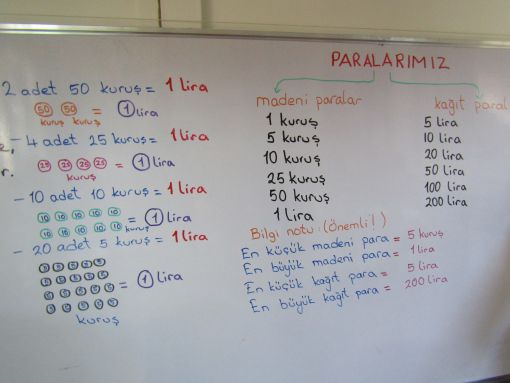 2 adet 50 kuruş = 1 lira
50 50 = 1 lira
kuruş kuruş
- 4 adet 25 kuruş = 1 lira
25 25 25 25 = 1 lira
kuruş
r.
- 10 adet 10 kuruş = 1 lira
10 10 10 10 10
10 10 10 10 10 kuruş = 1 lira
- 20 adet 5 kuruş = 1 lira
5 5 5 5 5
5 5 5 5 5
5 5 5 5 5
5 5 5 5 5
= 1 lira
kuruş
PARALARIMIZ
madeni paralar
1 kuruş
5 kuruş
10 kuruş
25 kuruş
50 kuruş
1 lira
kağıt paral
5 lira
10 lira
20 lira
50 lira
100 lira
200 lira
Bilgi notu: (Önemli!)
En küçük madeni para = 5 kuruş
En büyük madeni para = 1 lira
En küçük kağıt para = 5 lira
En büyük kağıt para = 200 lira